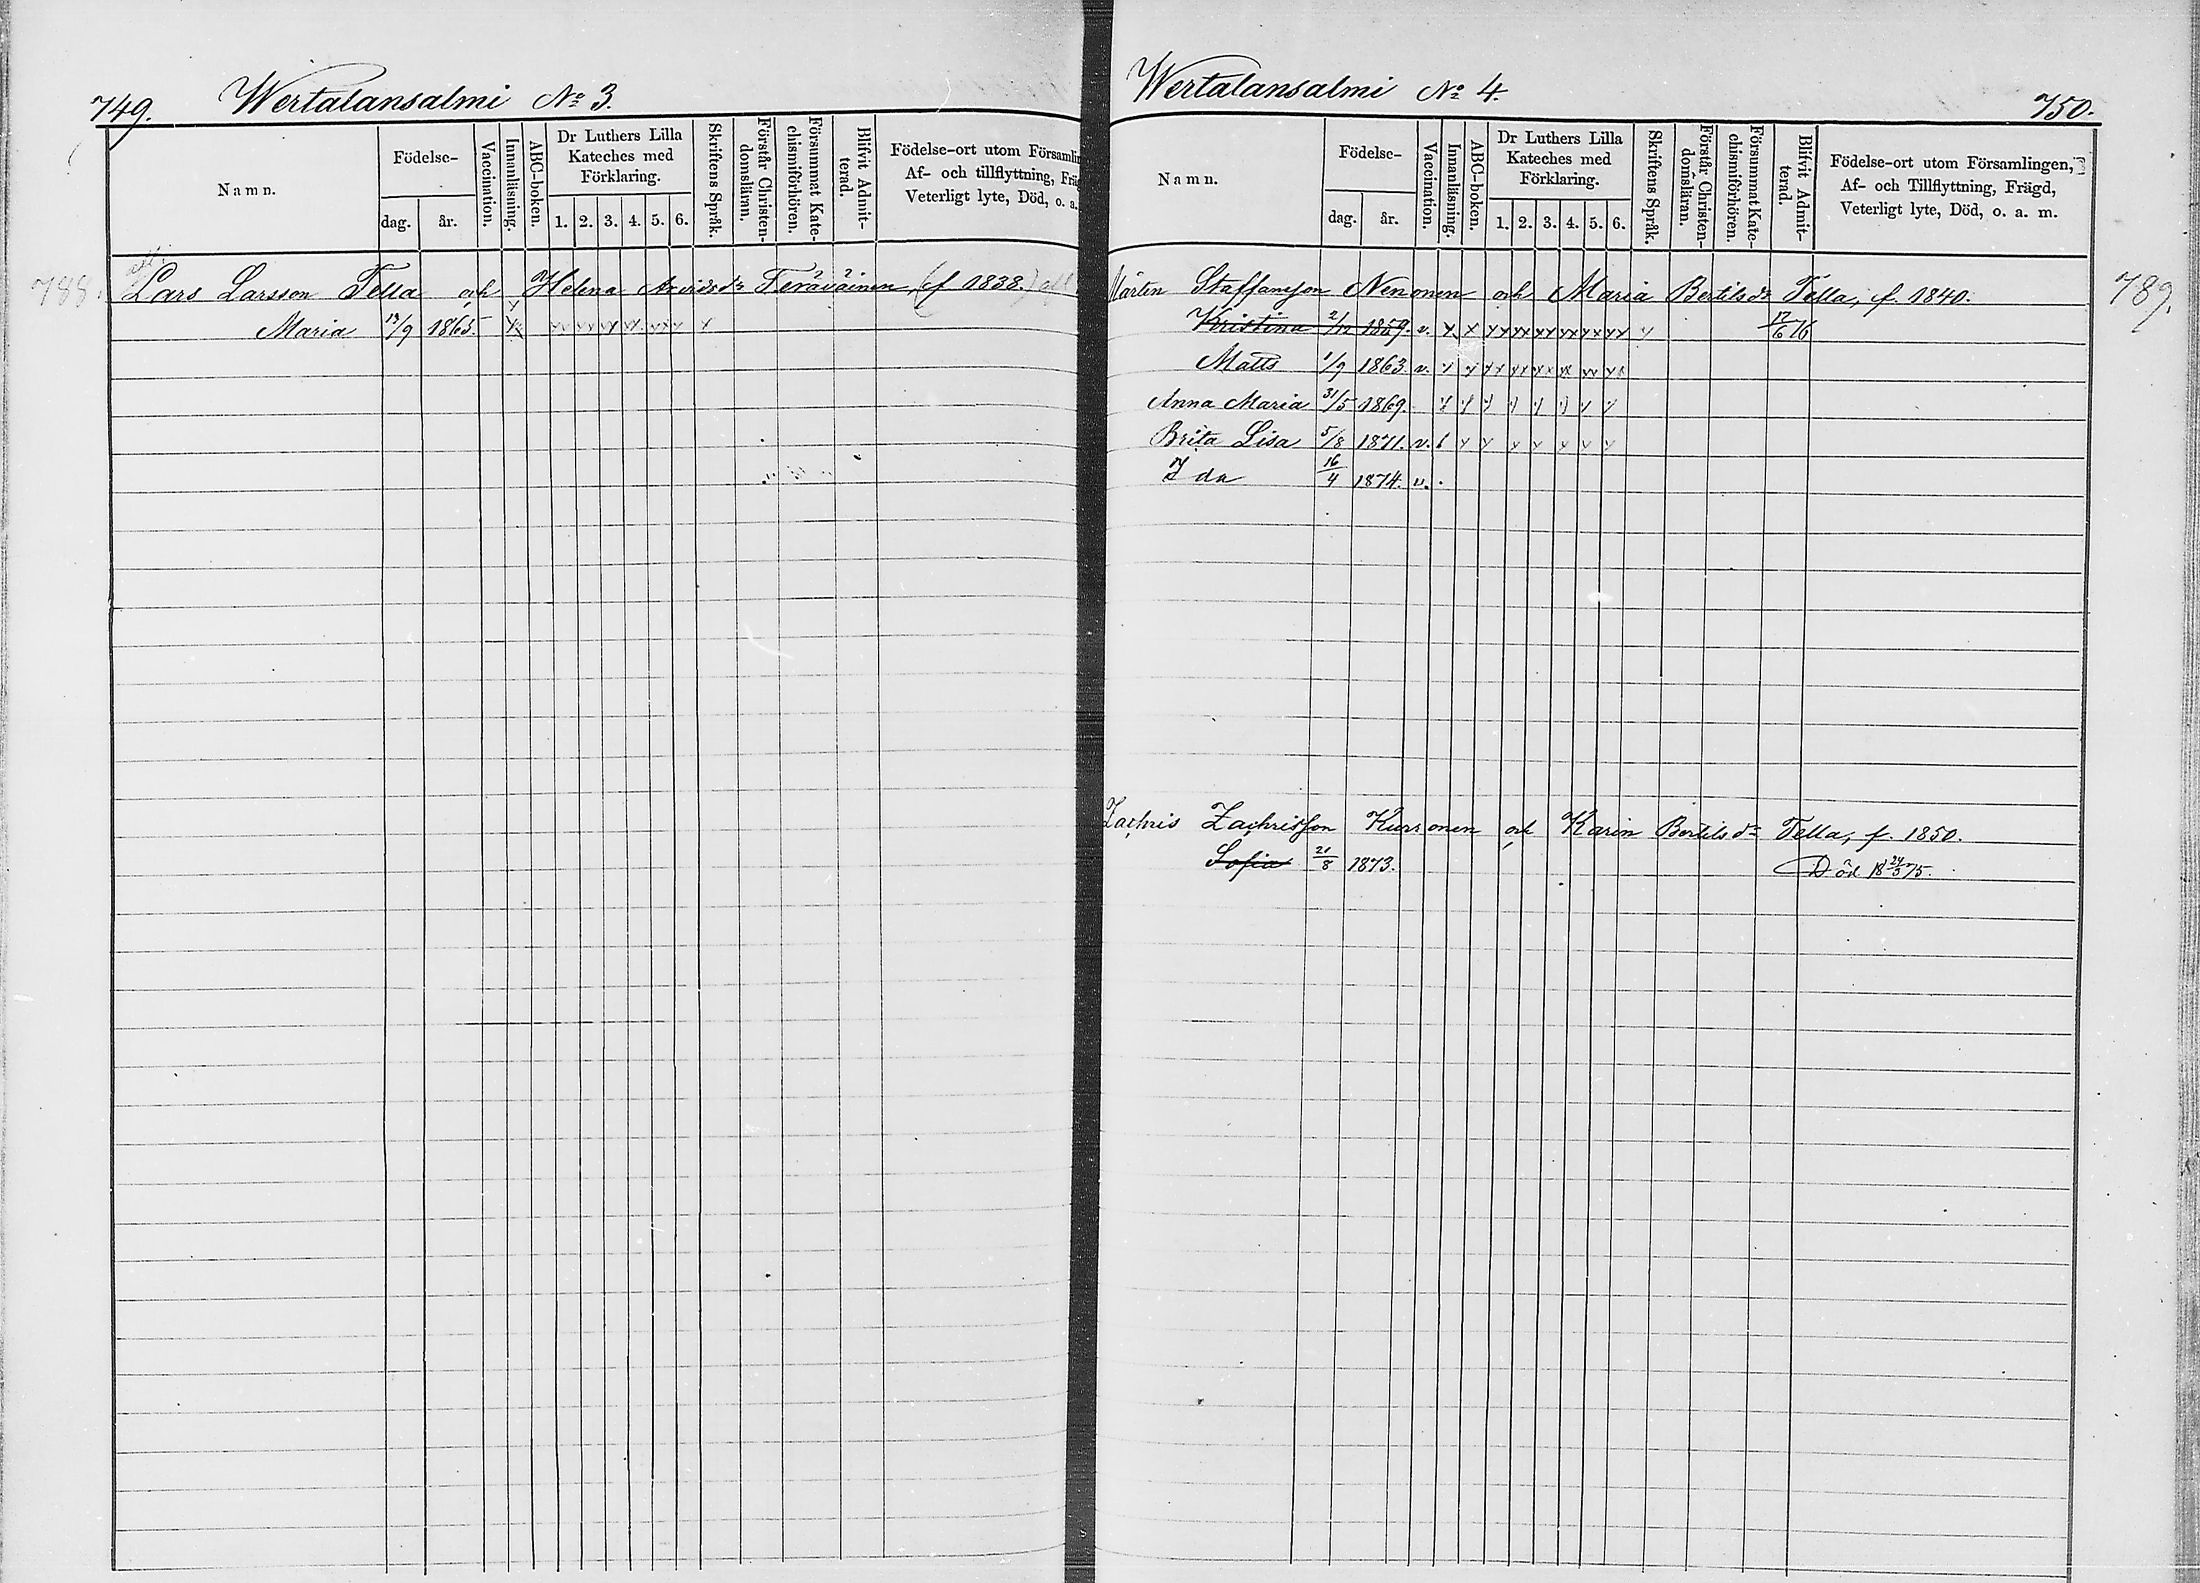 749. Wertalansalmi No 3.
Namn. Födelse- dag. år. Vaccination. Innanläsning. ABC-boken. Dr Luthers Lilla Kateches med Förklaring. 1. 2. 3. 4. 5. 6. Skriftens Språk. Förstår Christen-domsläran. Försummat Kate-chismiförhören. Blifvit Admit-terad. Födelse-ort utom Församlin Af- och tillflyttning, Fräg Veterligt lyte, Död, o. a.
788. Lars Larsson Tella och Helena Arvidsdr Teräväinen, (f 1838.)
Maria 13/9 1865.
Wertalansalmi No 4. 750.
Namn. Födelse- dag. år. Vaccination. Innanläsning. ABC-boken. Dr Luthers Lilla Kateches med Förklaring. 1. 2. 3. 4. 5. 6. Skriftens Språk. Förstår Christen-domsläran. Försummat Kate-chismiförhören. Blifvit Admit-terad. Födelse-ort utom Församlingen, Af- och Tillflyttning, Frägd, Veterligt lyte, Död, o. a. m.
Mårten Staffansson Nenonen och Maria Bertilsdr Tella, f. 1840. 789.
Kristina 2/12 1859. v. 17/6 76
Matts 1/9 1863. v.
Anna Maria 31/5 1869.
Brita Lisa 5/8 1871. v.
Ida 16/4 1874. v.
Zachris Zachrisson Kurronen och Karin Bertilsdr Tella, f. 1850.
Sofia 21/8 1873. Död 18 24/5 75.